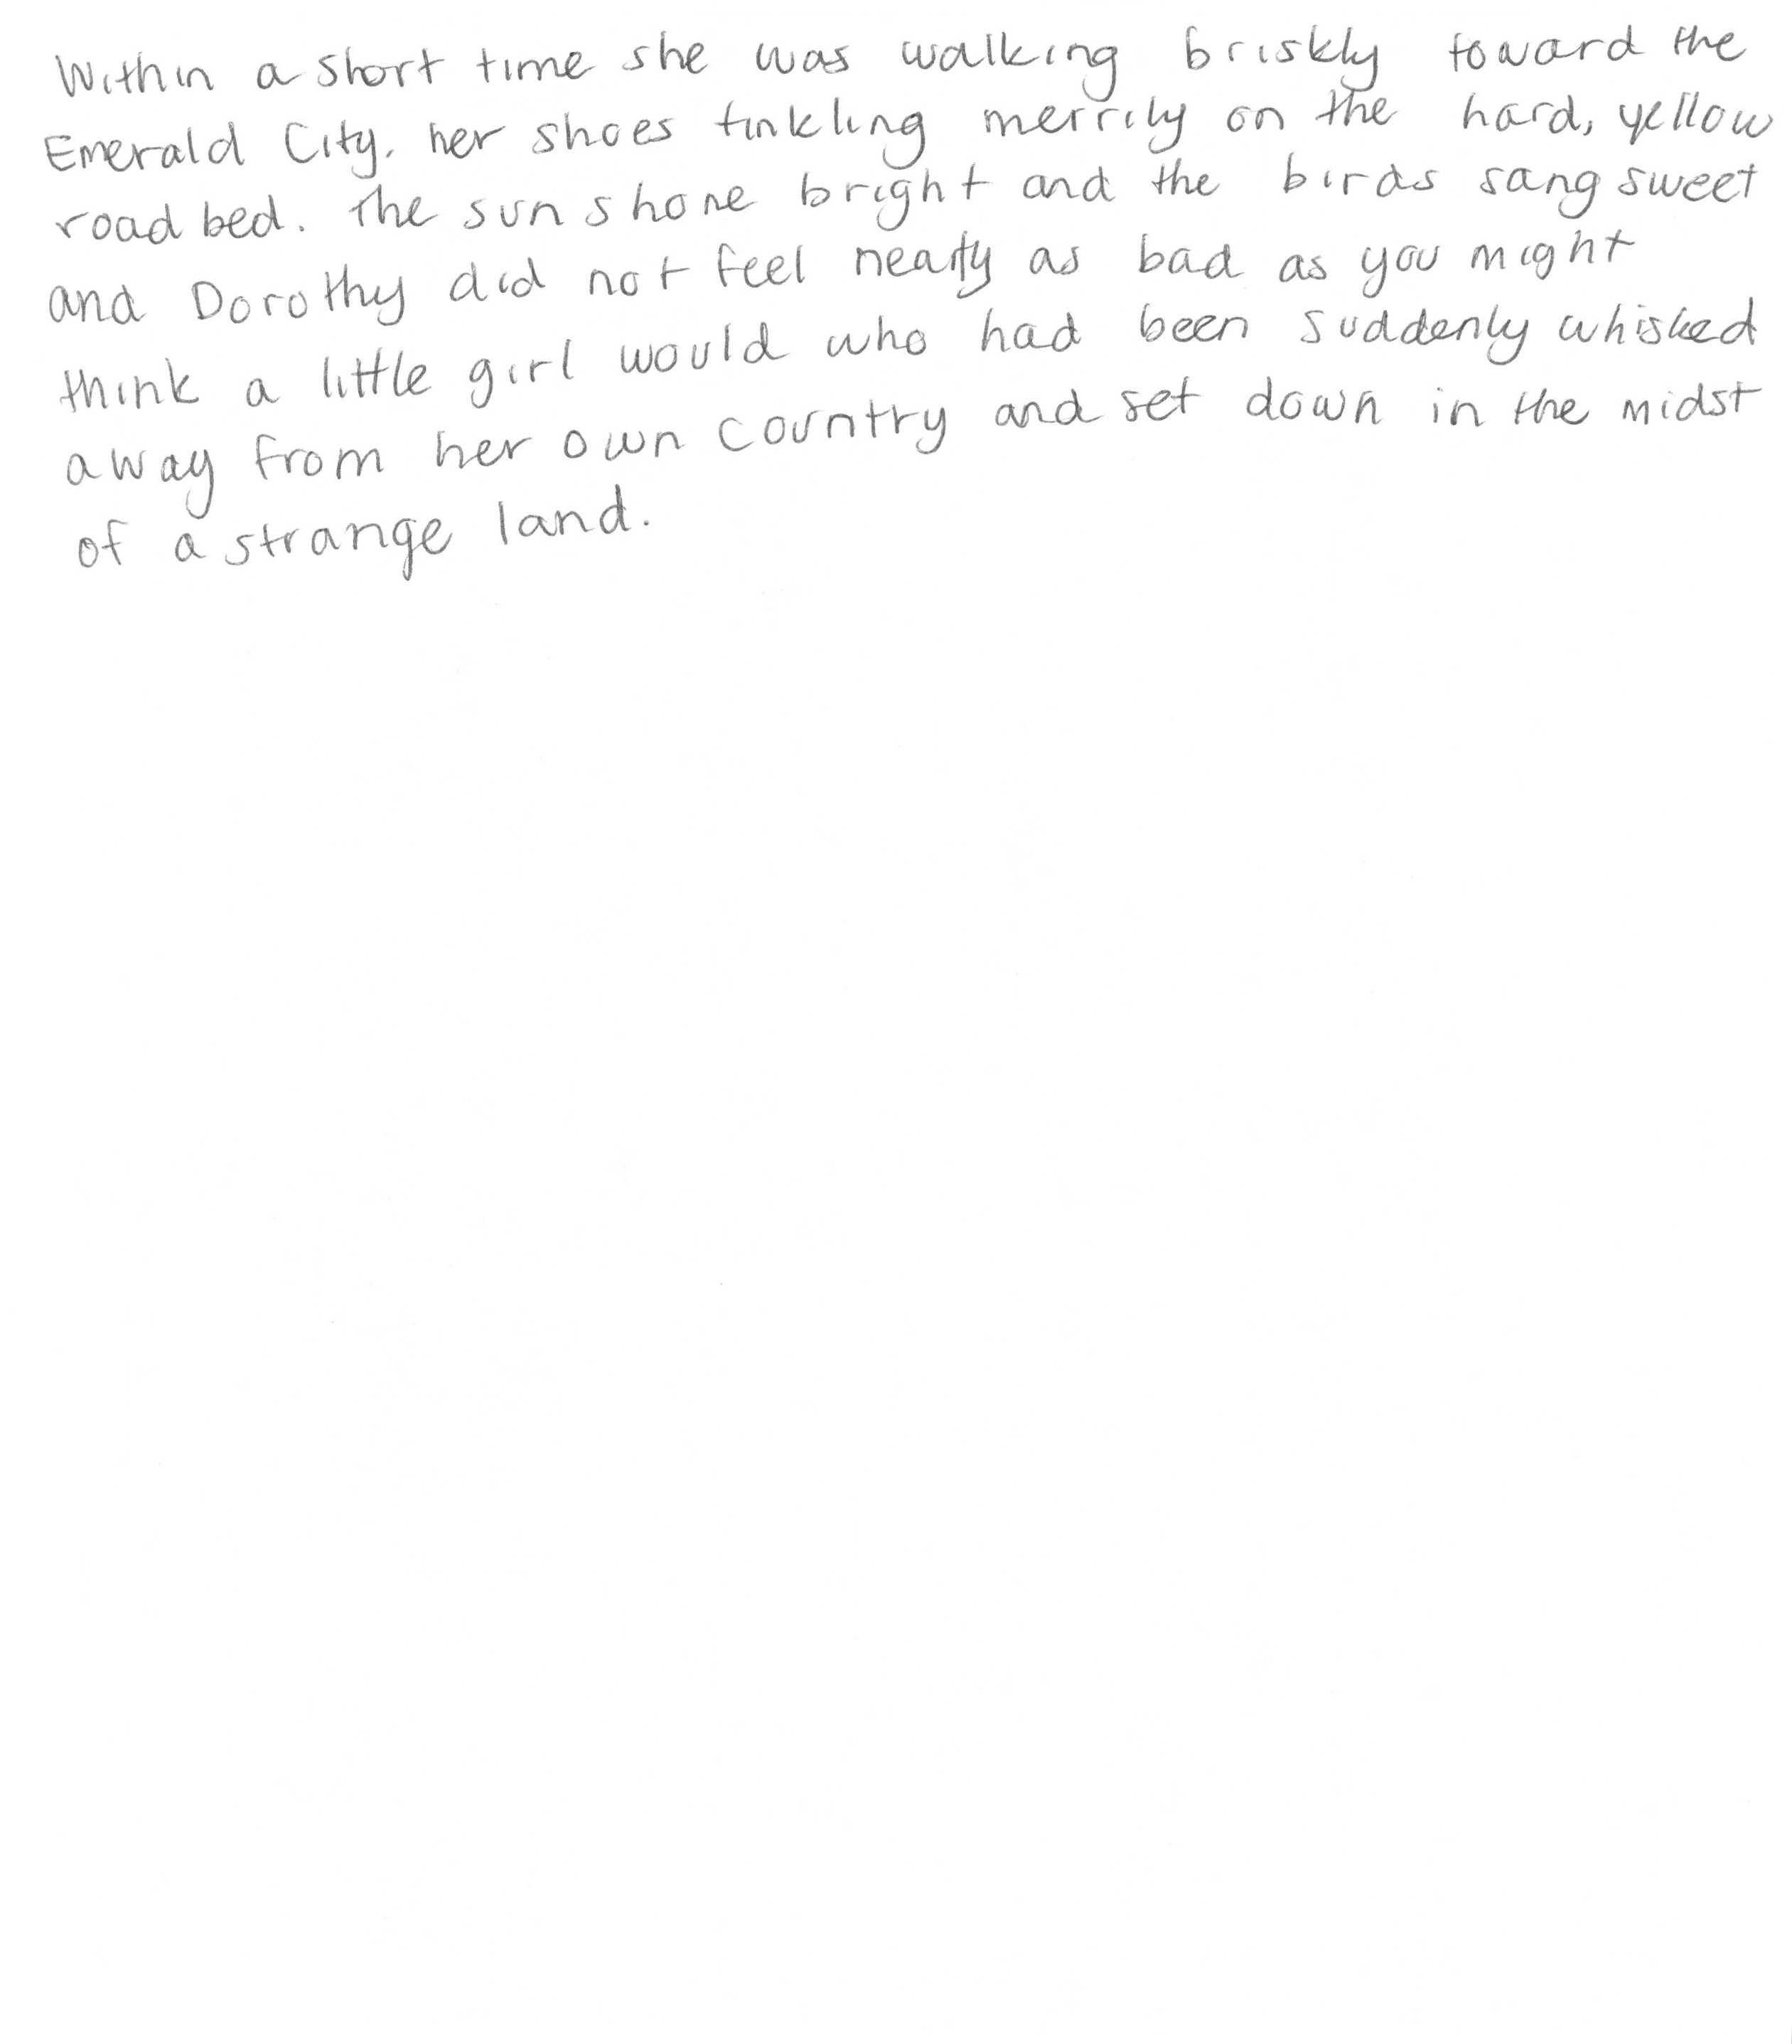 Within a short time she was walking briskly toward the
Emerald City, her shoes tinkling merrily on the hard, yellow
road bed. The sun shone bright and the birds sang sweet
and Dorothy did not feel nearly as bad as you might
think a little girl would who had been suddenly whisked
away from her own country and set down in the midst
of a strange land.